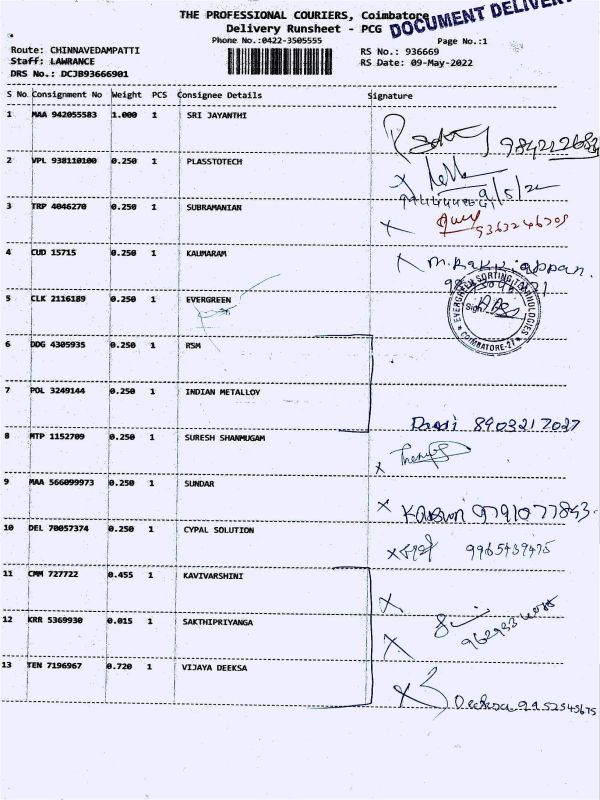 THE PROFESSIONAL COURIERS, Coimbatore
DOCUMENT DELIVERY
Delivery Runsheet - PCG
Phone No.:0422-3505555
Page No.:1
Route: CHINNAVEDAMPATTI
RS No.: 936669
Staff: LAWRANCE
RS Date: 09-May-2022
DRS No.: DCJB93666901
S No Consignment No Weight PCS Consignee Details Signature
1 MAA 942055583 1.000 1 SRI JAYANTHI
2 VPL 938110100 0.250 1 PLASSTOTECH
9/5/22
3 TRP 4046270 0.250 1 SUBRAMANIAN
9363246709
4 CUD 15715 0.250 1 KAUMARAM
5 CLK 2116189 0.250 1 EVERGREEN
EVERGREEN SORTING TECHNOLOGIES
Sign.
COIMBATORE-27
6 DDG 4305935 0.250 1 RSM
7 POL 3249144 0.250 1 INDIAN METALLOY
8903217027
8 MTP 1152709 0.250 1 SURESH SHANMUGAM
9 MAA 566099973 0.250 1 SUNDAR
9791077843
10 DEL 70057374 0.250 1 CYPAL SOLUTION
9965439475
11 CMM 727722 0.455 1 KAVIVARSHINI
12 KRR 5369930 0.015 1 SAKTHIPRIYANGA
13 TEN 7196967 0.720 1 VIJAYA DEEKSA
Deeksa 9952545675